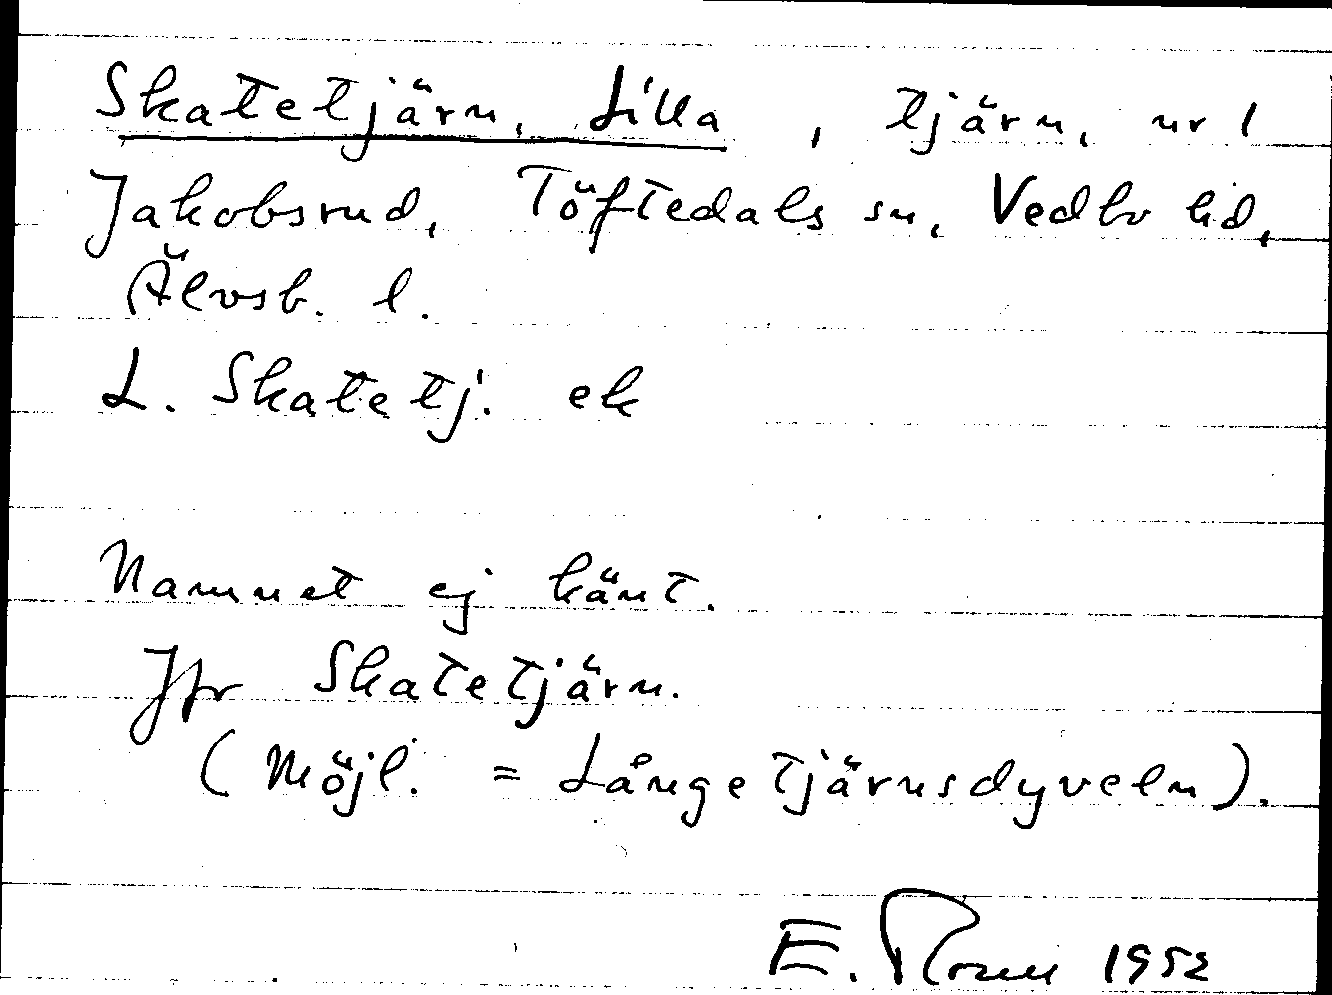 Skatetjärn, Lilla, tjärn, nr 1
Jakobsrud, Töftedals sn, Vedbo hd,
Älvsb. l.
L. Skatetj. ek
Namnet ej känt.
Jfr Skatetjärn.
(Möjl. = Långetjärnsdyveln).
E. 1952